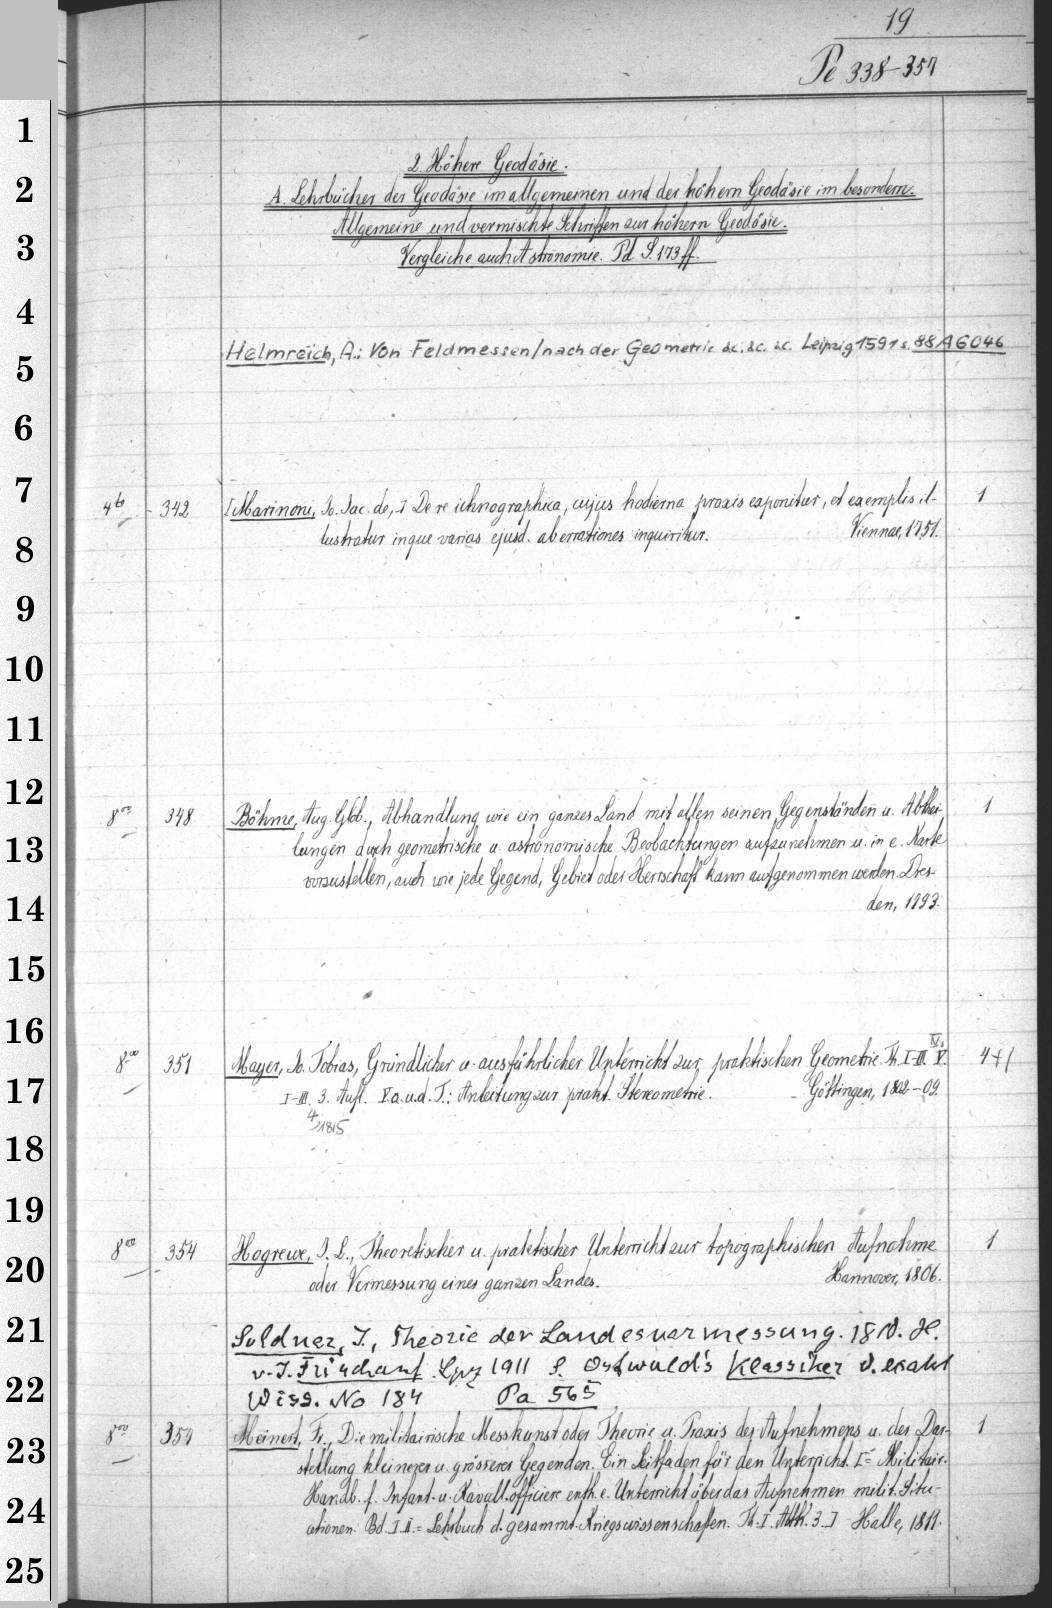 19
Pe 338-357
2. Höhere Geodäsie.
A. Lehrbücher der Geodäsie im allgemeinen und der höhern Geodäsie im besondern.
Allgemeine und vermischte Schriften zur höhern Geodäsie.
Vergleiche auch Astronomie. Pd S. 173 ff.
Helmreich, A.: Von Feldmessen/nach der Geometrie &c. &c. &c. Leipzig 1591 s. 88 A 6046
4to 342 [Marinoni, Jo. Jac. de,-] De re ichnographica, cujus hodierna praxis exponitur, et exemplis il- 1
lustratur inque varias ejusd. aberrationes inquiritur. Viennae, 1751.
8vo 348 Böhme, Aug. Glob., Abhandlung wie ein ganzes Land mit allen seinen Gegenständen u. Abthei- 1
lungen durch geometrische u. astronomische Beobachtungen aufzunehmen u. in e. Karte
vorzustellen, auch wie jede Gegend, Gebiet oder Herrschaft kann aufgenommen werden. Dres-
den, 1793.
IV.
8vo 351 Mayer, Jo. Tobias, Gründlicher u. ausführlicher Unterricht zur praktischen Geometrie. Th. I-III V. 4+1
I-III. 3. Aufl. V a. u. d. T.: Anleitung zur prakt. Stereometrie. Göttingen, 1802-09.
4/1815
8vo 354 Hogrewe, J. L., Theoretischer u. praktischer Unterricht zur topographischen Aufnahme 1
oder Vermessung eines ganzen Landes. Hannover, 1806.
Soldner, J., Theorie der Landesvermessung. 1810. H.
v. J. Frischauf. Lpz 1911 s. Ostwald's Klassiker d. exakt
Wiss. No 184 Pa 565
8vo 357 Meinert, Fr., Die militairische Messkunst oder Theorie u. Praxis des Aufnehmens u. der Dar- 1
stellung kleinerer u. grösserer Gegenden. Ein Leitfaden für den Unterricht. [= Militair.
Handb. f. Infant.- u. Kavall.officiere enth. e. Unterricht über das Aufnehmen milit. Situ-
ationen. Bd. I. II. = Lehrbuch d. gesammt. Kriegswissenschaften. Th. I. Abth. 3.] Halle, 1811.
1
2
3
4
5
6
7
8
9
10
11
12
13
14
15
16
17
18
19
20
21
22
23
24
25